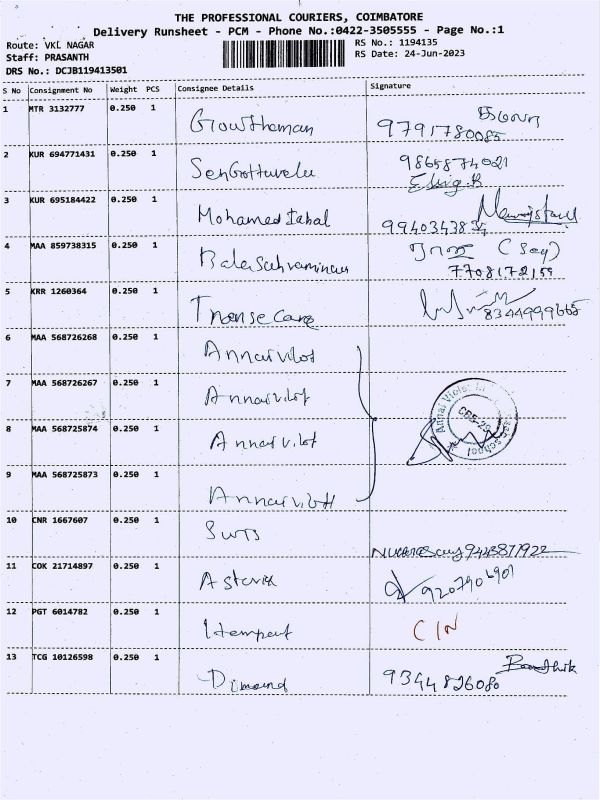 THE PROFESSIONAL COURIERS, COIMBATORE
Delivery Runsheet - PCM - Phone No.:0422-3505555 - Page No.:1
Route: VKL NAGAR
RS No.: 1194135
Staff: PRASANTH
RS Date: 24-Jun-2023
DRS No.: DCJB119413501
S No Consignment No Weight PCS Consignee Details Signature
1 MTR 3132777 0.250 1
Gowthaman 9791780085
2 KUR 694771431 0.250 1 9865874021
Sengottuvelu
3 KUR 695184422 0.250 1
Mohamed Iqbal
4 MAA 859738315 0.250 1
Balasubramanian 7708172159
5 KRR 1260364 0.250 1
8344999665
6 MAA 568726268 0.250 1
Annai vilot
7 MAA 568726267 0.250 1
Annai vilot
8 MAA 568725874 0.250 1
Annai vilot
9 MAA 568725873 0.250 1
Annai vilot
10 CNR 1667607 0.250 1
9443877922
11 COK 21714897 0.250 1
9207906901
12 PGT 6014782 0.250 1
C/N
13 TCG 10126598 0.250 1
Dimond 9344826080